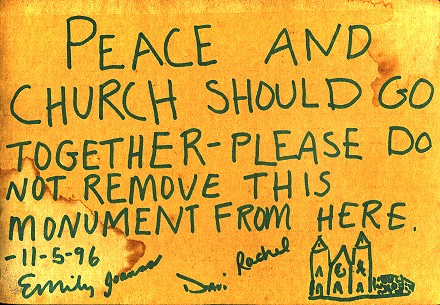 PEACE AND
CHURCH SHOULD GO
TOGETHER-PLEASE DO
NOT REMOVE THIS
MONUMENT FROM HERE.
-11-5-96
Emily Joanna Davi Rachel